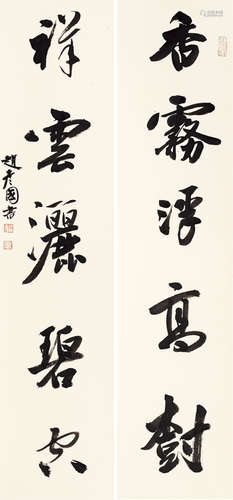 香霧浮高樹
祥雲灑碧空
趙彥國書